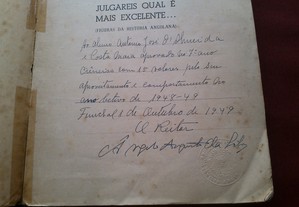 JULGAREIS QUAL É
MAIS EXCELENTE...
(FIGURAS DA HISTÓRIA ANGOLANA)
Ao aluno António José D'Almeida
e Costa aprovado ao 1º ano
Ciências com 15 valores pelo seu
aproveitamento e comportamento no
ano lectivo de 1948-49
Funchal 1 de Outubro de 1949
O Reitor
Angelo Augusto da Silva